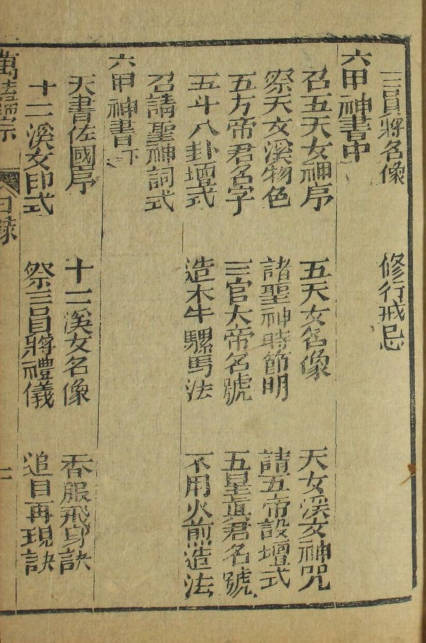 三員將名像 修行戒忌
六甲神書中
召五天女神序 五天女名像 天女溪女神咒
祭天女溪物色 諸聖神時節明 請五帝設壇式
五方帝君名字 三官大帝名號 五星眞君名號
五斗八卦壇式 造木牛騾馬法 不用火煎造法
召請聖神詞式
六甲神書下
天書佐國序 十二溪女名像 吞服飛身訣
十二溪女印式 祭三員將禮儀 追目再現訣
萬法歸宗 目錄 二